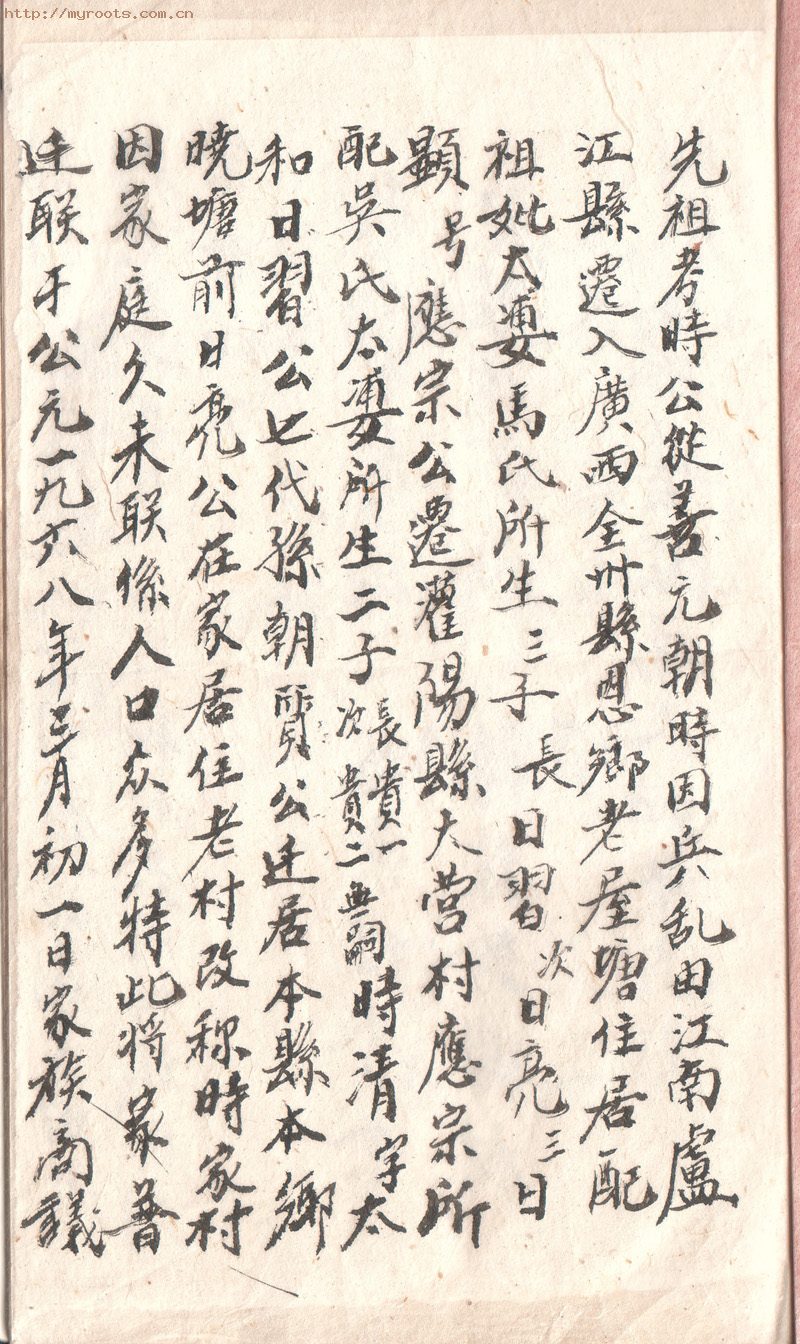 http://myroots.com.cn
先祖考時公從善元朝時因兵乱由江南盧
江縣遷入廣西全州縣恩鄉老屋塘住居配
祖妣太婆馬氏所生三子長日習次日亮三日
顯号應宗公遷灌陽縣大营村應宗所
配吳氏太婆所生二子長貴一次貴二無嗣時清字太
和日習公七代孫朝賢公迁居本縣本鄉
曉塘前日亮公在家居住老村改称時家村
因家庭久未联係人口众多特此将家普
迁联于公元一九六八年三月初一日家族商議